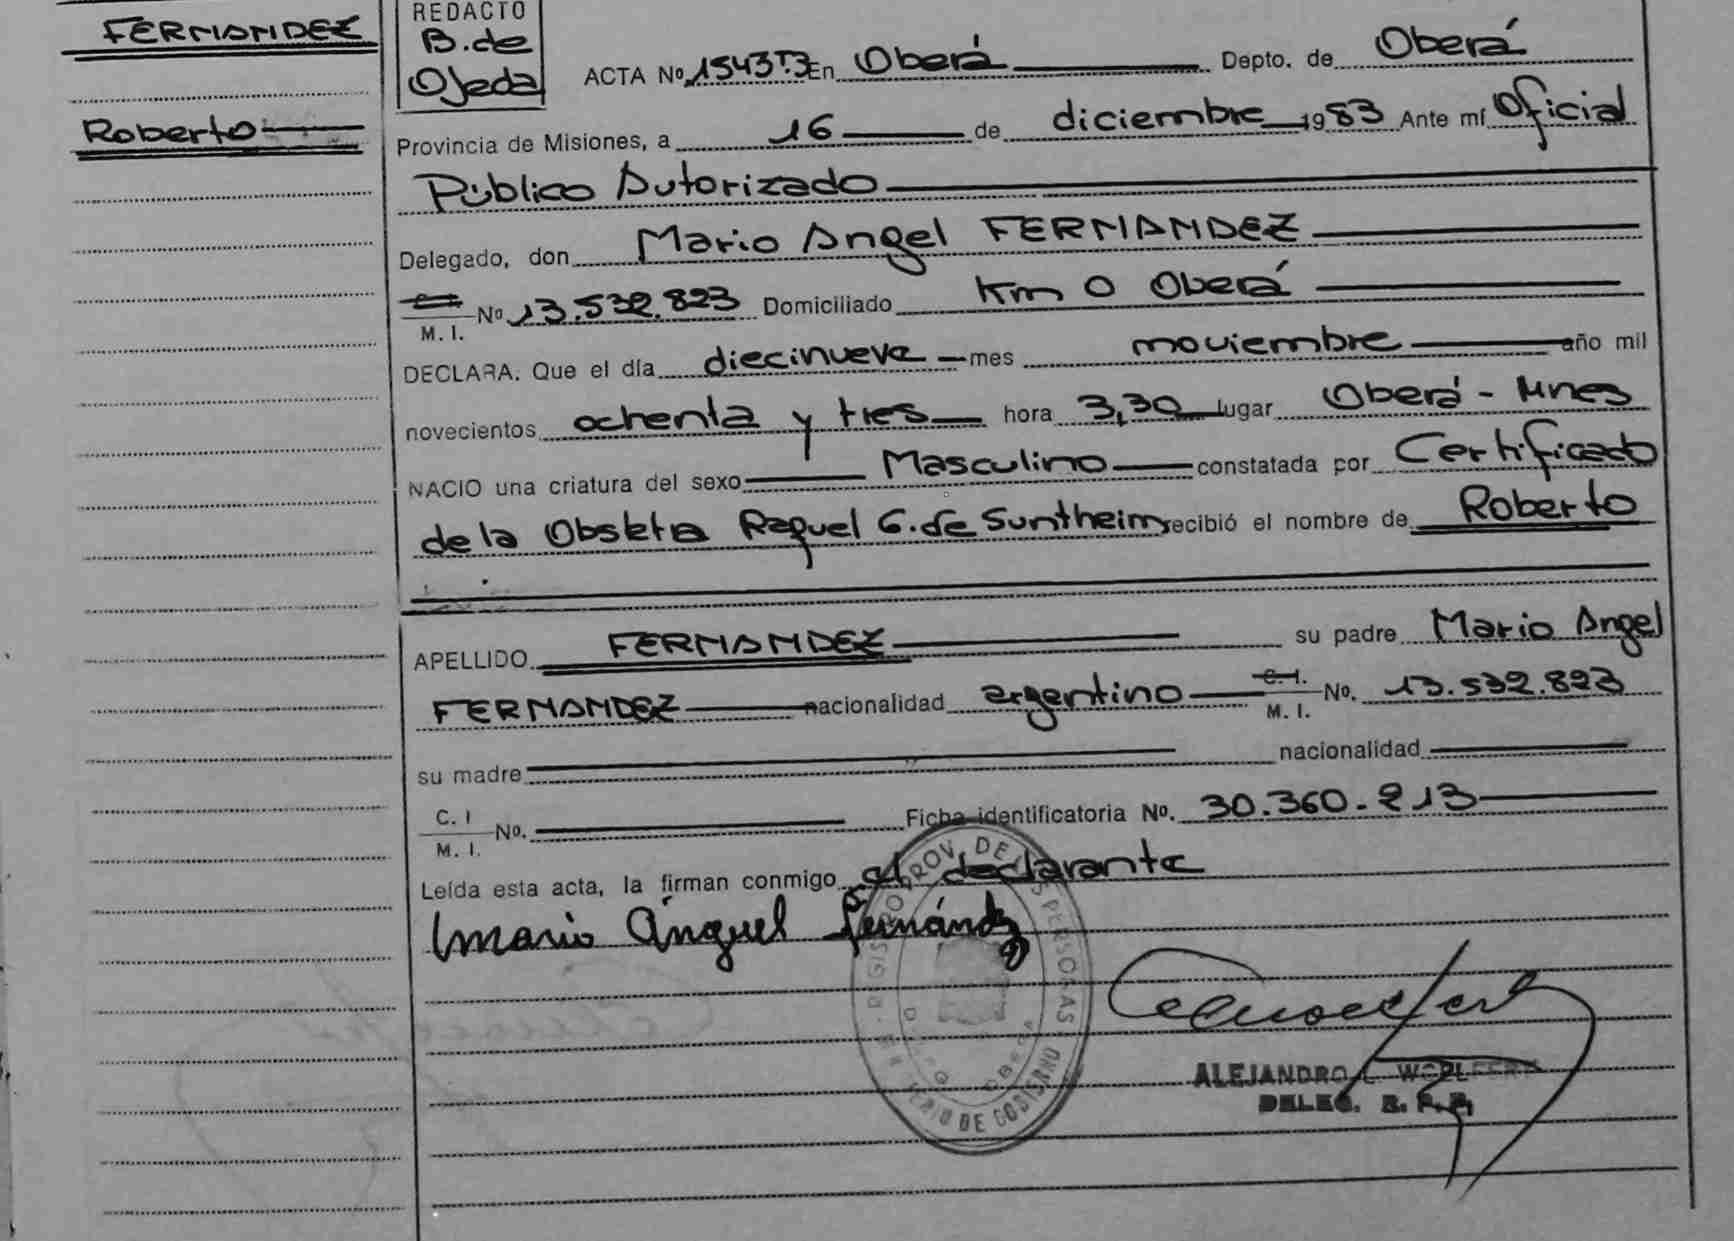 FERNANDEZ
Roberto
REDACTO
B. de
Ojeda
ACTA Nº 1543T.3 En Oberá Depto. de Oberá
Provincia de Misiones, a 16 de diciembre 1983 Ante mí Oficial
Público Autorizado
Delegado, don Mario Angel FERNANDEZ
Nº 13.532.823 Domiciliado Km 0 Oberá
M. I.
DECLARA: Que el día diecinueve mes noviembre año mil
novecientos ochenta y tres hora 3,30 lugar Oberá - Mnes
NACIO una criatura del sexo Masculino constatada por Certificado
de la Obstetra Raquel G. de Suntheim recibió el nombre de Roberto
APELLIDO FERNANDEZ su padre Mario Angel
FERNANDEZ nacionalidad argentino C. I. Nº. 13.532.823
M. I.
su madre nacionalidad
C. I Nº. Ficha identificatoria Nº. 30.360.213
M. I.
Leída esta acta, la firman conmigo el declarante
Mario Ánguel Fernández
PROV. DE PERSONAS
DE GOBIERNO
ALEJANDRO
DELEG. R. P. P.